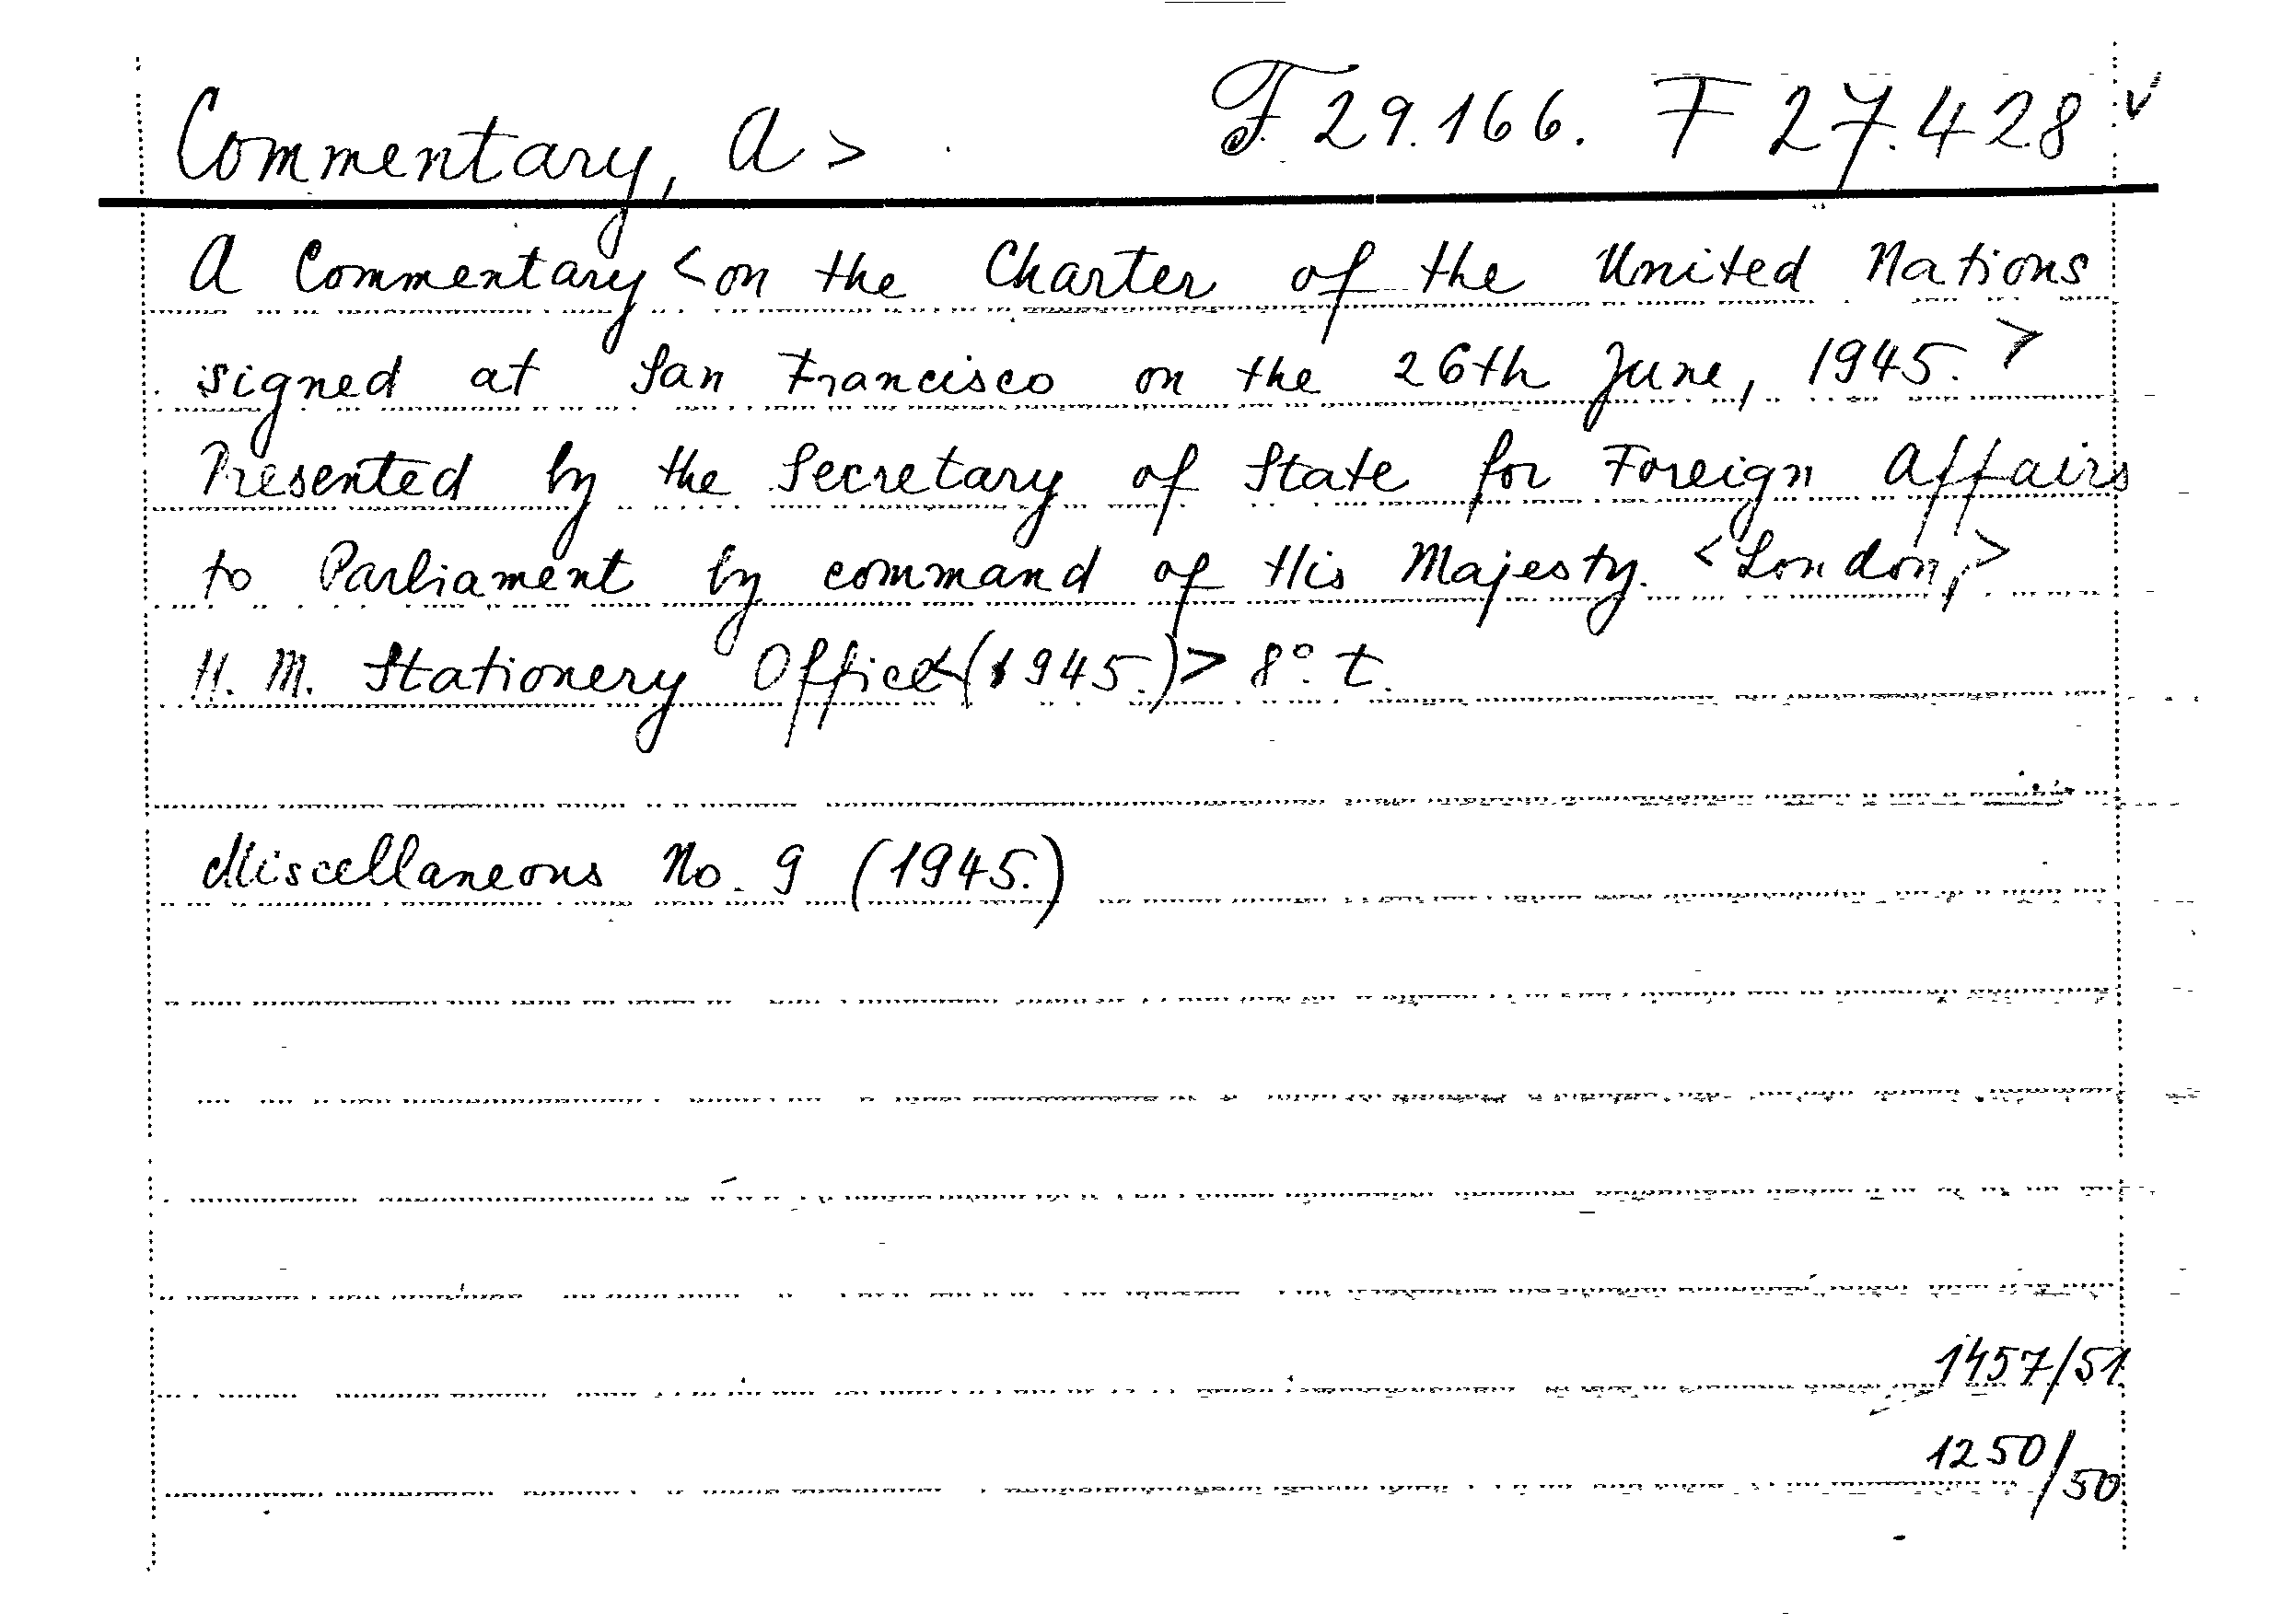 Commentary, A > F 29.166. F 27.428 v
A Commentary < on the Charter of the United Nations
signed at San Francisco on the 26th June, 1945. >
Presented by the Secretary of State for Foreign Affairs
to Parliament by command of His Majesty. <London,>
H. M. Stationery Office <(1945.)> 8° t.
Miscellaneous No. 9 (1945.)
1457/51
1250/50